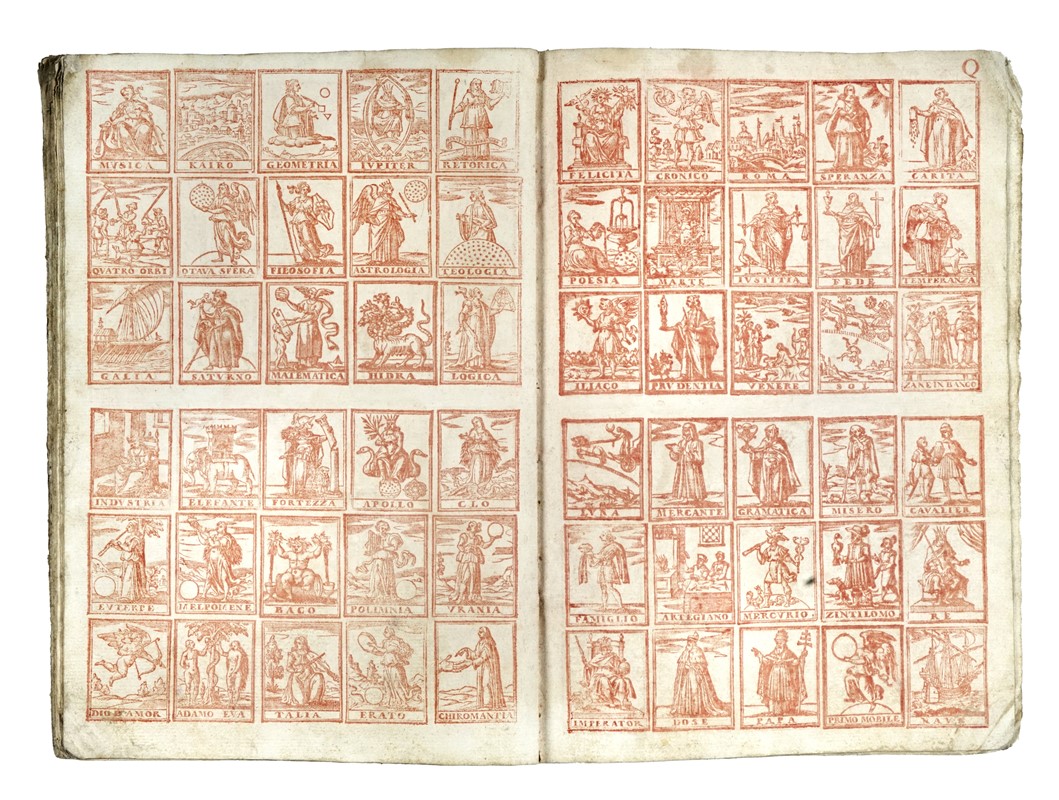 Q
MVSICA KAIRO GEOMETRIA IVPITER RETORICA
QVATRO ORBI OTAVA SFERA FILOSOFIA ASTROLOGIA TEOLOGIA
GALIA SATVRNO MATEMATICA HIDRA LOGICA
INDVSTRIA ELEFANTE FORTEZZA APOLLO CLO
EVTERPE MELPOMENE BACO POLIMNIA VRANIA
DIO D'AMOR ADAMO EVA TALIA ERATO CHIROMANTIA
FELICITA CRONICO ROMA SPERANZA CARITA
POESIA MARTE IVSTITIA FEDE TEMPERANZA
ILIACO PRVDENTIA VENERE SOL ZANE IN BANCO
MERCANTE GRAMATICA MISERO CAVALIER
FAMIGLIO ARTEGIANO MERCVRIO ZINTILOMO RE
IMPERATOR DOSE PAPA PRIMO MOBILE NAVE